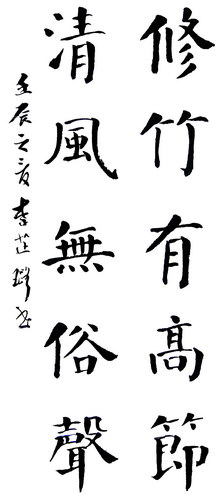 修竹有高節
清風無俗聲
壬辰之夏李芷𤩽书